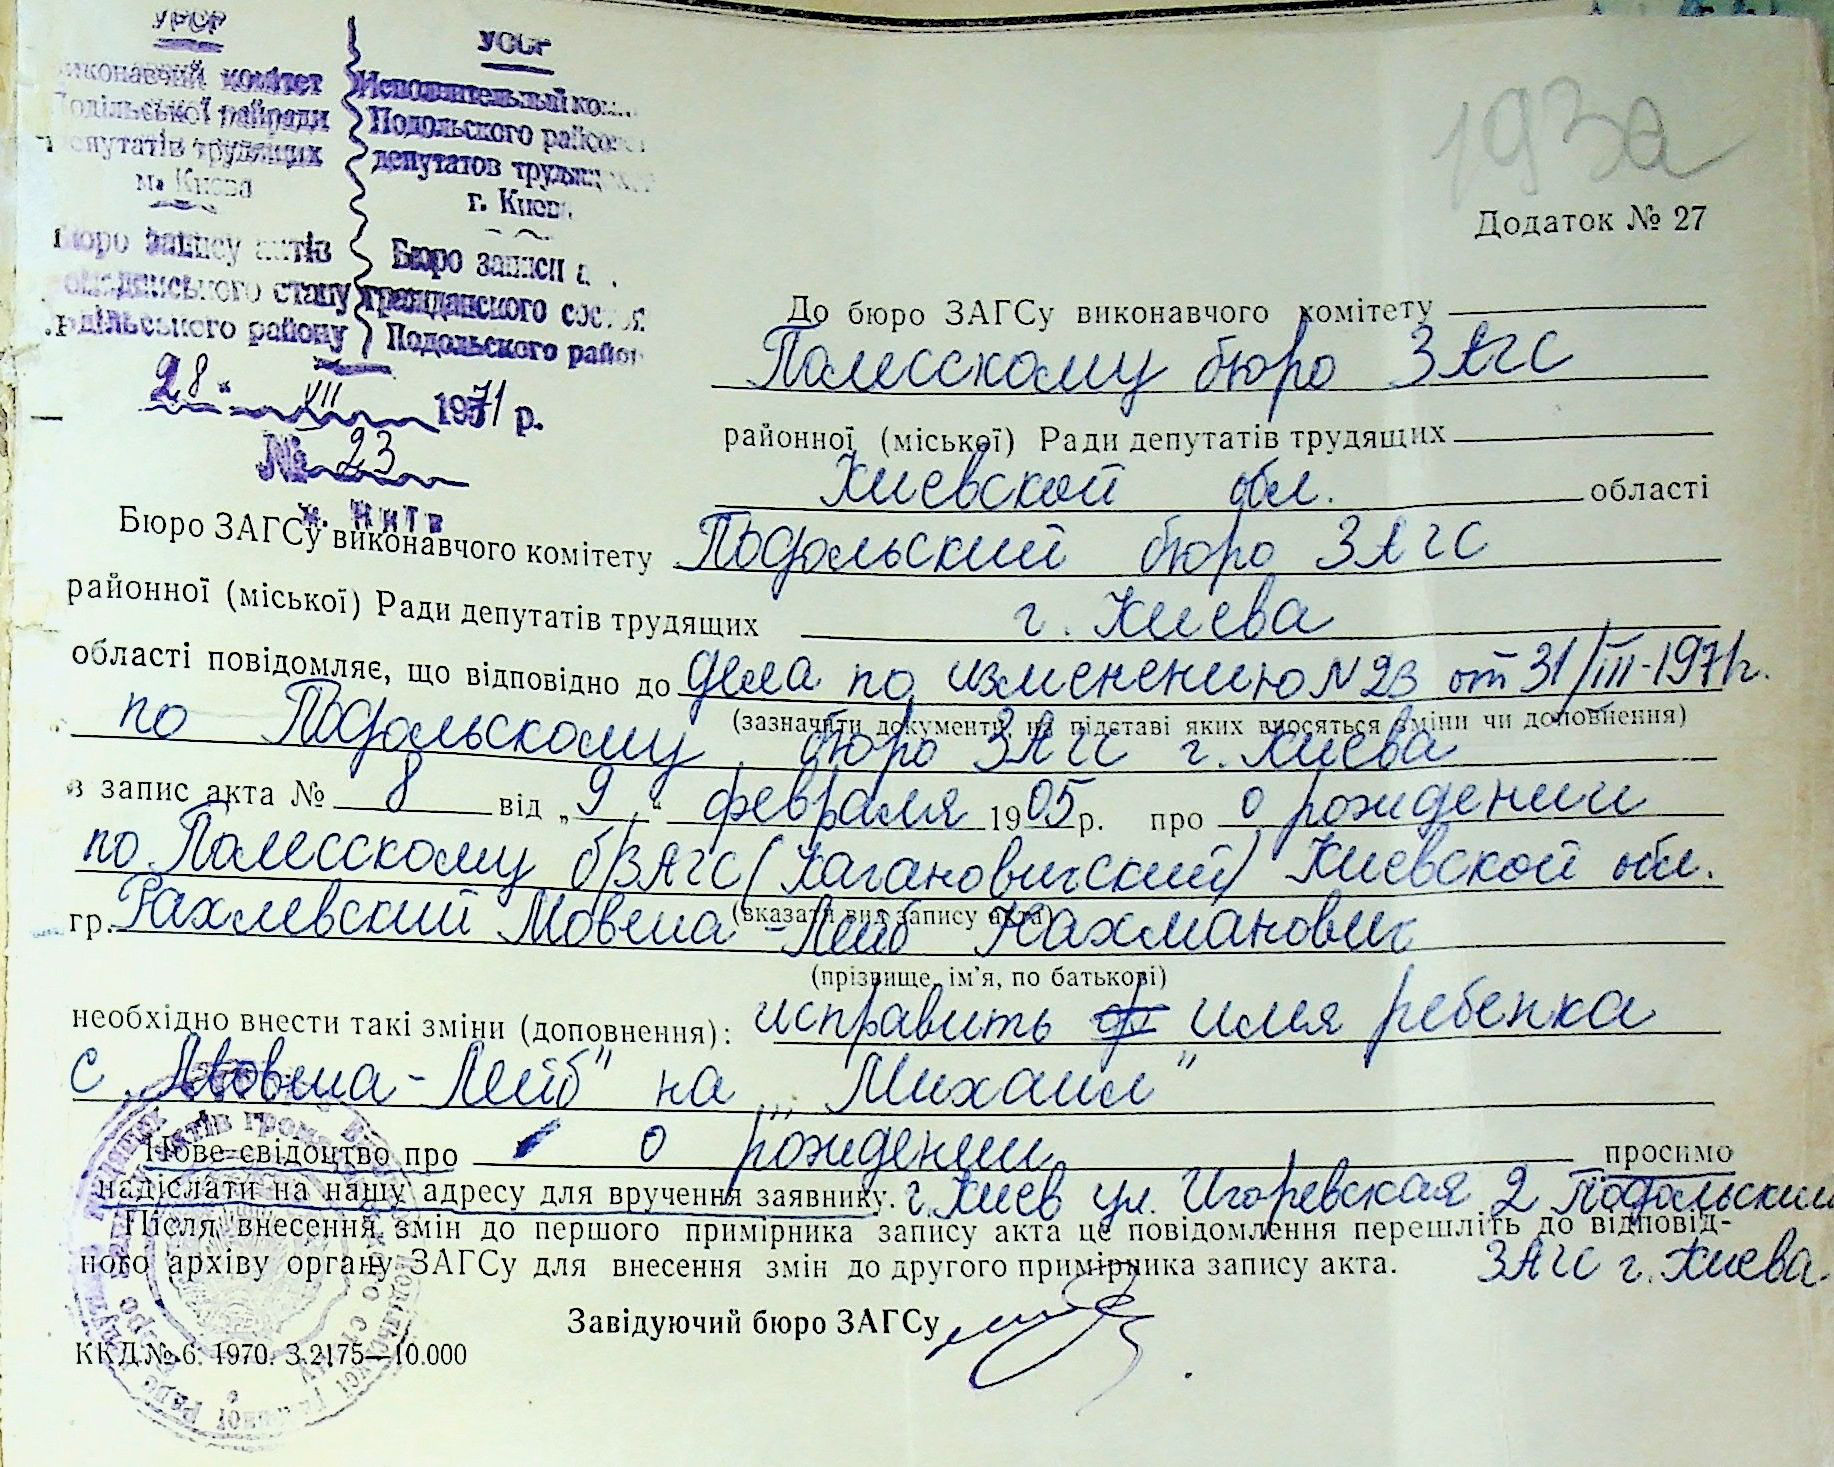 УРСР
виконавчий комітет
Подільської райради
депутатів трудящих
м. Києва
Бюро запису актів
громадянського стану
Подільського району
УССР
Исполнительный ком
Подольского райсове
депутатов трудящих
г. Киев
Бюро записи а
гражданского сост
Подольского район
28 " VII 1971 р.
№ 23
м. Київ
193а
Додаток № 27
До бюро ЗАГСу виконавчого комітету
Полесскому бюро ЗАГС
районної (міської) Ради депутатів трудящих
Киевской обл. області
Бюро ЗАГСу виконавчого комітету Подольский бюро ЗАГС
районної (міської) Ради депутатів трудящих г. Киева
області повідомляє, що відповідно до дела по изменению N 23 от 31/III-1971г.
(зазначити документи, на підставі яких вносяться зміни чи доповнення)
по Подольскому бюро ЗАГС г. Киева
в запис акта № 8 від „9" февраля 1905 р. про о рождении
по Полесскому б/ЗАГС (Кагановичский) Киевской обл.
(вказати вид запису акта)
гр. Рахлевский Мовша-Лейб Нахманович
(прізвище, ім'я, по батькові)
необхідно внести такі зміни (доповнення): исправить имя ребенка
с „Мовша-Лейб" на „Михаил"
Нове свідоцтво про о рождении просимо
надіслати на нашу адресу для вручення заявнику. г. Киев ул. Игоревская 2 Подольский
Після внесення змін до першого примірника запису акта це повідомлення перешліть до відповід-
ного архіву органу ЗАГСу для внесення змін до другого примірника запису акта. ЗАГС г. Киева.
Завідуючий бюро ЗАГСу
ККД № 6. 1970. З.2175—10.000